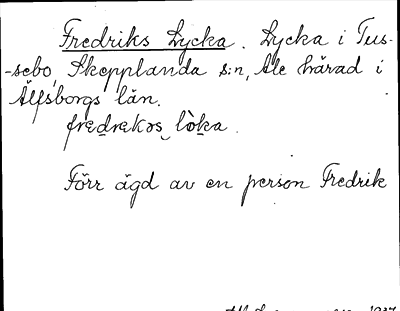 Fredriks Lycka. Lycka i Tus-
-sebo, Skepplanda s:n, Ale härad i
Älfsborgs län.
fredrekɷs lòka.
Förr ägd av en person Fredrik
1937